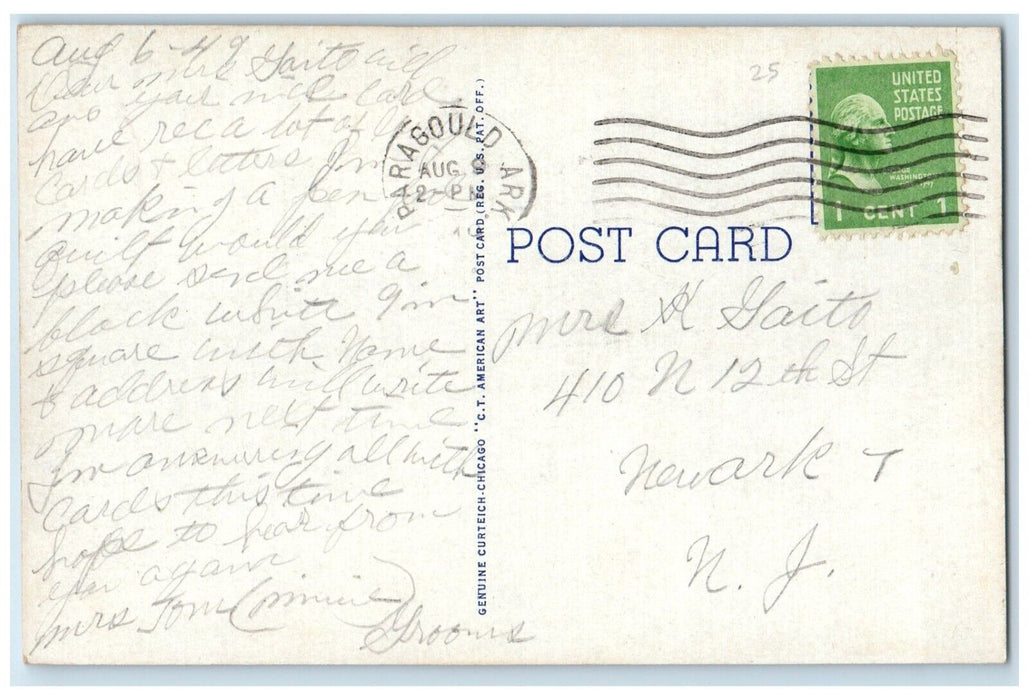 Aug 6-49
Dear mrs Gaito will
ans your nice card
have rec a lot of
cards & letters Im
making a pen
quilt would you
please send me a
block white 9 in
square with Name
& address will write
more next time
Im answering all with
cards this time
hope to hear from
you again
mrs Tom (minnie)
Grooms
GENUINE CURTEICH-CHICAGO "C.T. AMERICAN ART" POST CARD (REG. U.S. PAT. OFF.)
PARAGOULD ARK
AUG 9
2-PM
25
UNITED
STATES
POSTAGE
WASHINGTON
1 CENT 1
POST CARD
mrs H Gaito
410 N 12th St
Newark 7
N. J.